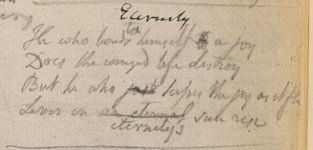 Eternity
He who binds to himself a joy
Does the winged life destroy
But he who just kisses the joy as it flies
Lives in an eternal sun rise
eternity's